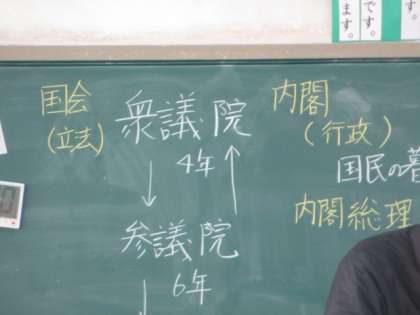 国会
(立法)
衆議院
4年
参議院
6年
内閣
(行政)
国民の暮
内閣総理
です。
ます。